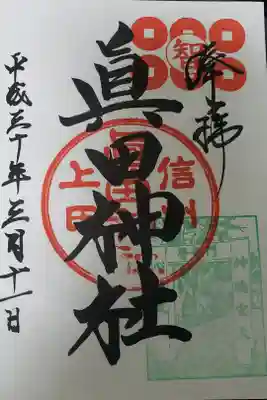 奉拝
智
眞田神社
信州
上田
平成三十年三月十一日